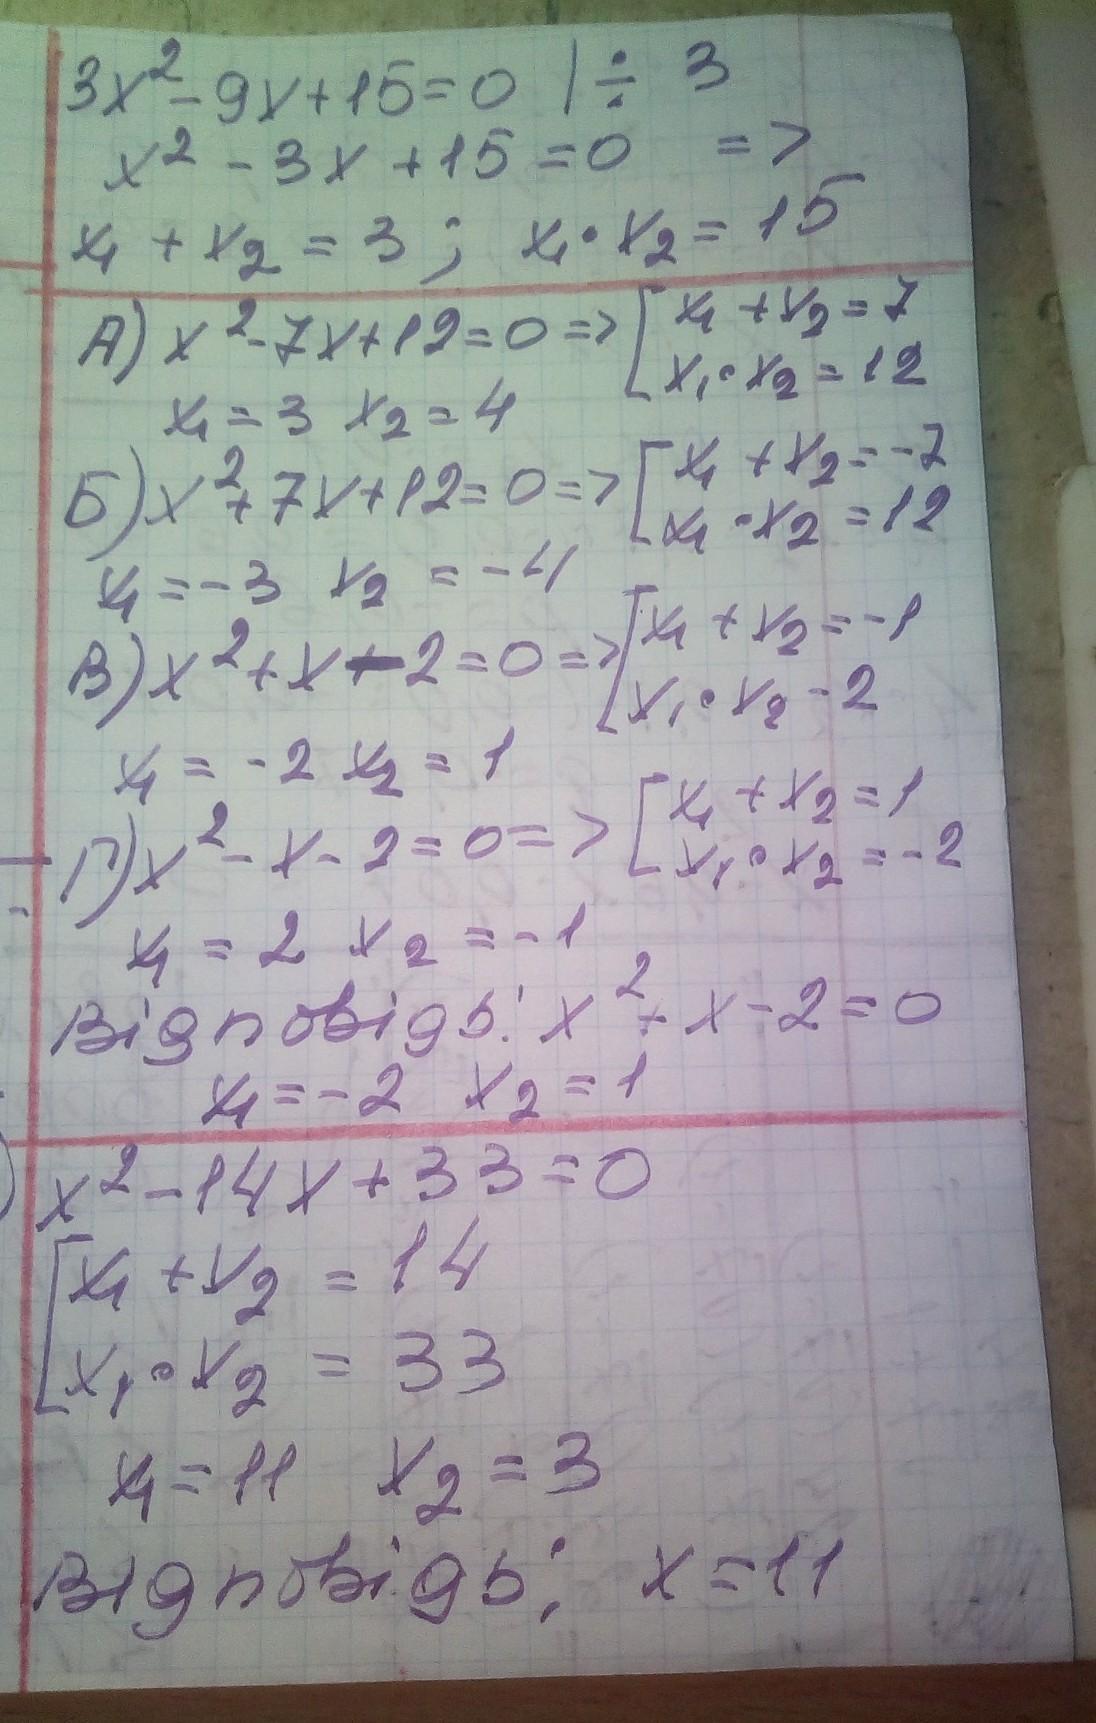 3x² - 9x + 15 = 0 | ÷ 3
x² - 3x + 15 = 0 =>
x₁ + x₂ = 3; x₁ · x₂ = 15
А) x² - 7x + 12 = 0 => [ x₁ + x₂ = 7
x₁ · x₂ = 12
x₁ = 3 x₂ = 4
Б) x² + 7x + 12 = 0 => [ x₁ + x₂ = -7
x₁ · x₂ = 12
x₁ = -3 x₂ = -4
В) x² + x - 2 = 0 => [ x₁ + x₂ = -1
x₁ · x₂ - 2
x₁ = -2 x₂ = 1
Г) x² - x - 2 = 0 => [ x₁ + x₂ = 1
x₁ · x₂ = -2
x₁ = 2 x₂ = -1
Відповідь: x² + x - 2 = 0
x₁ = -2 x₂ = 1
x² - 14x + 33 = 0
[ x₁ + x₂ = 14
x₁ · x₂ = 33
x₁ = 11 x₂ = 3
Відповідь; x = 11